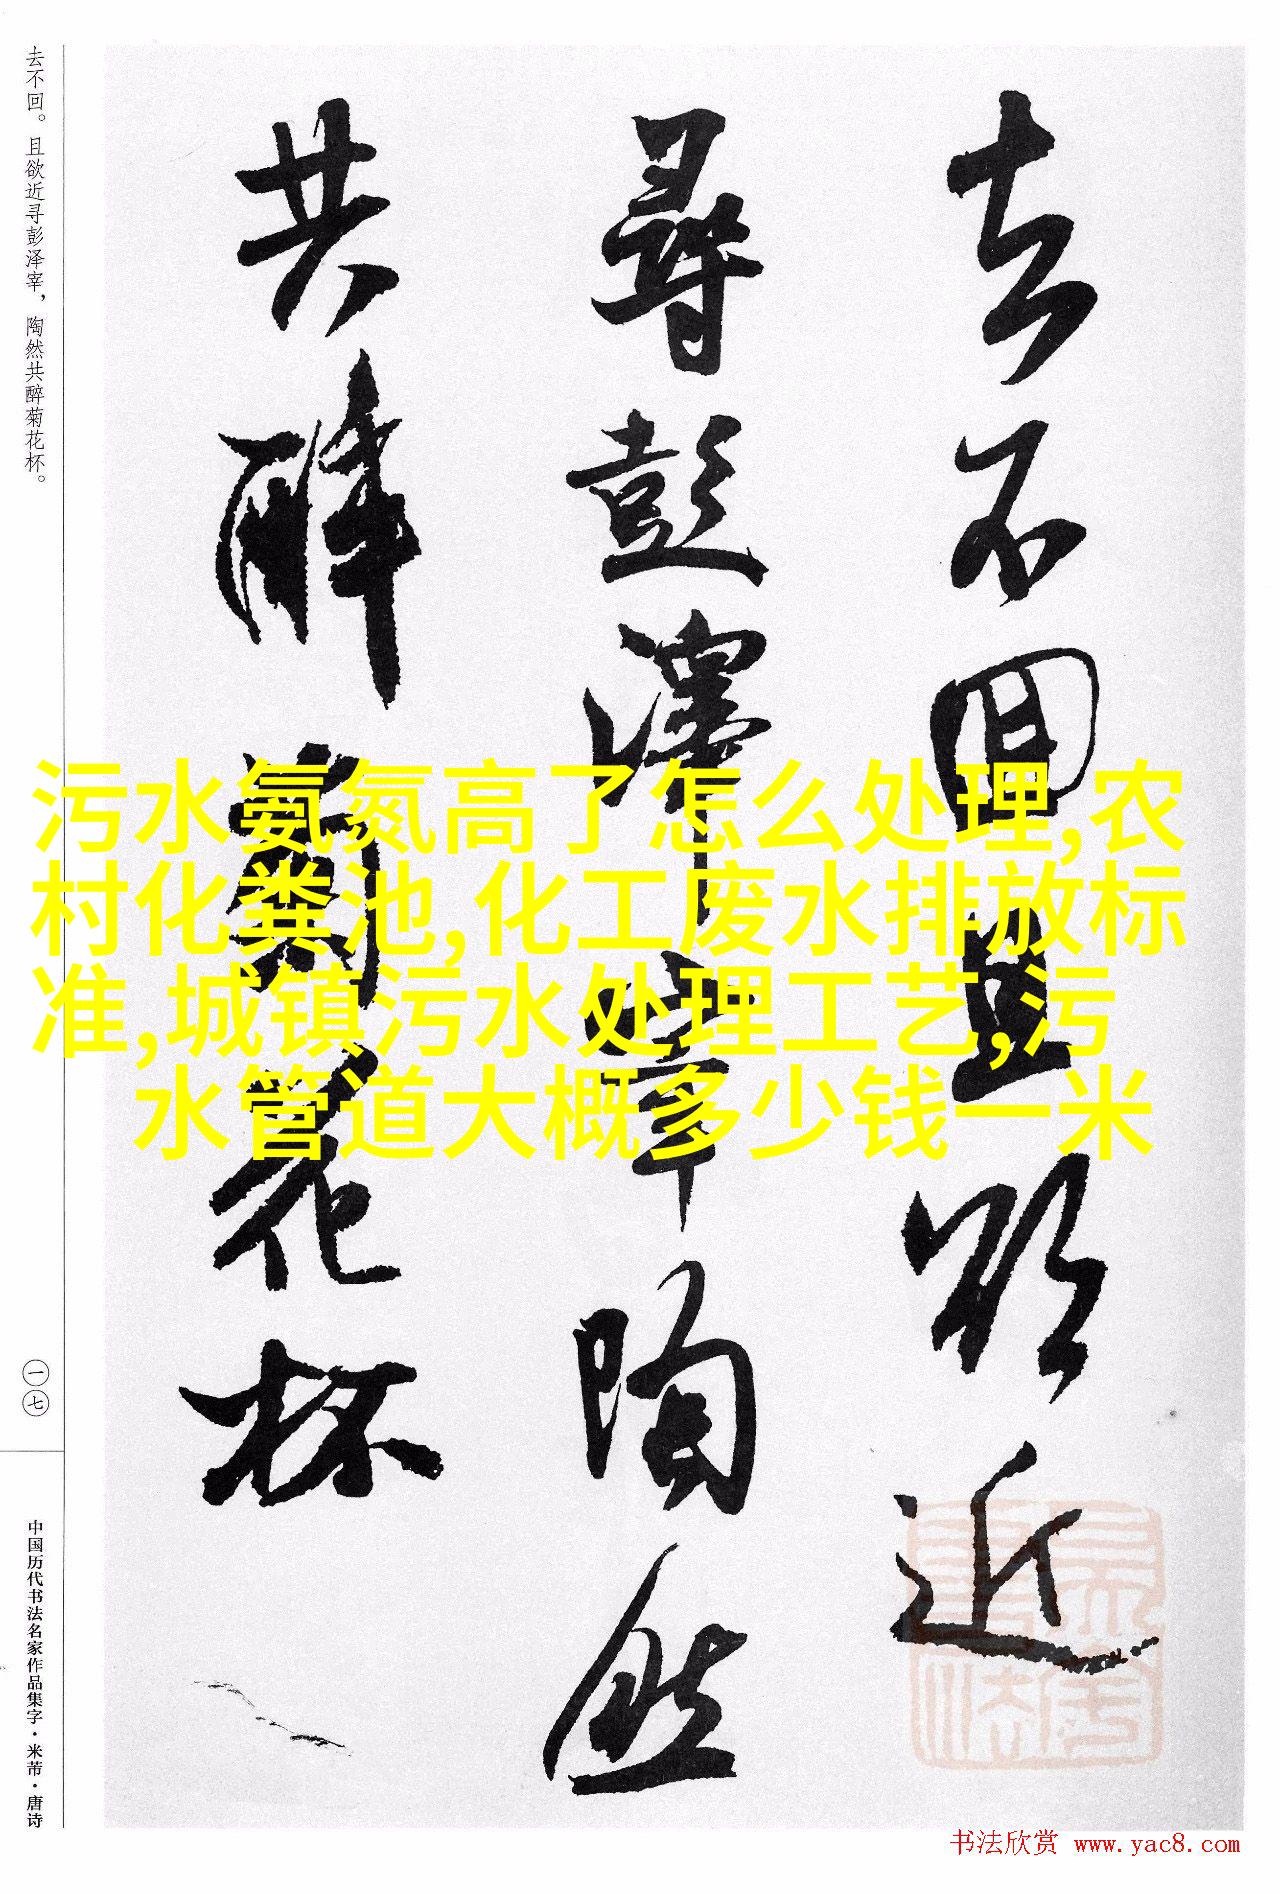 去不回且欲近
尋彭澤宰陶然
共醉菊花杯
去不回。且欲近寻彭泽宰，陶然共醉菊花杯。
一七
中国历代书法名家作品集字·米芾·唐诗
污水氨氮高了怎么处理,农
村化粪池,化工废水排放标
准,城镇污水处理工艺,污
水管道大概多少钱一米
书法欣赏 www.yac8.com